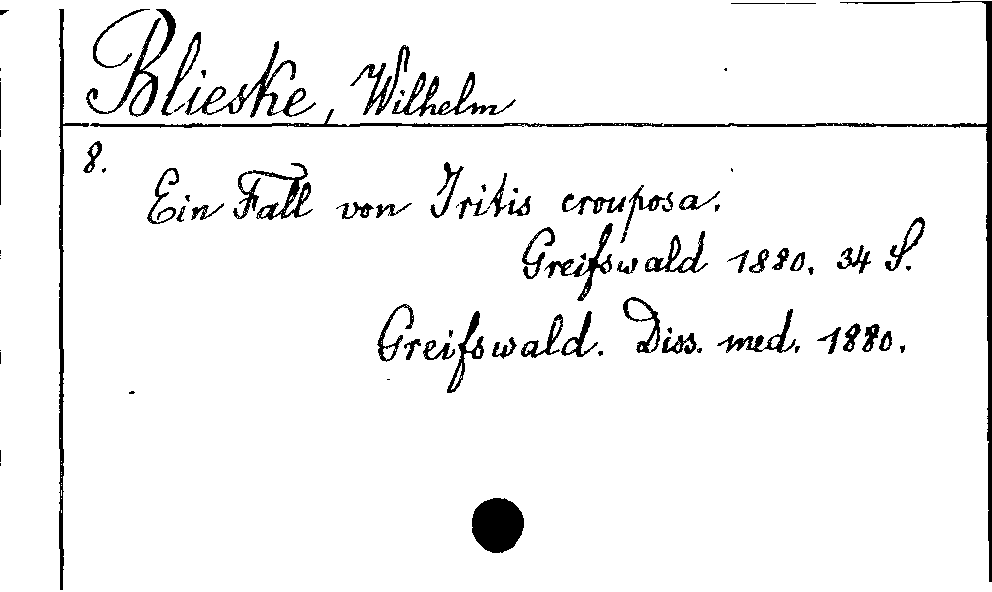 Blieske, Wilhelm
8.
Ein Fall von Iritis crouposa.
Greifswald 1880. 34 S.
Greifswald. Diss. med. 1880.